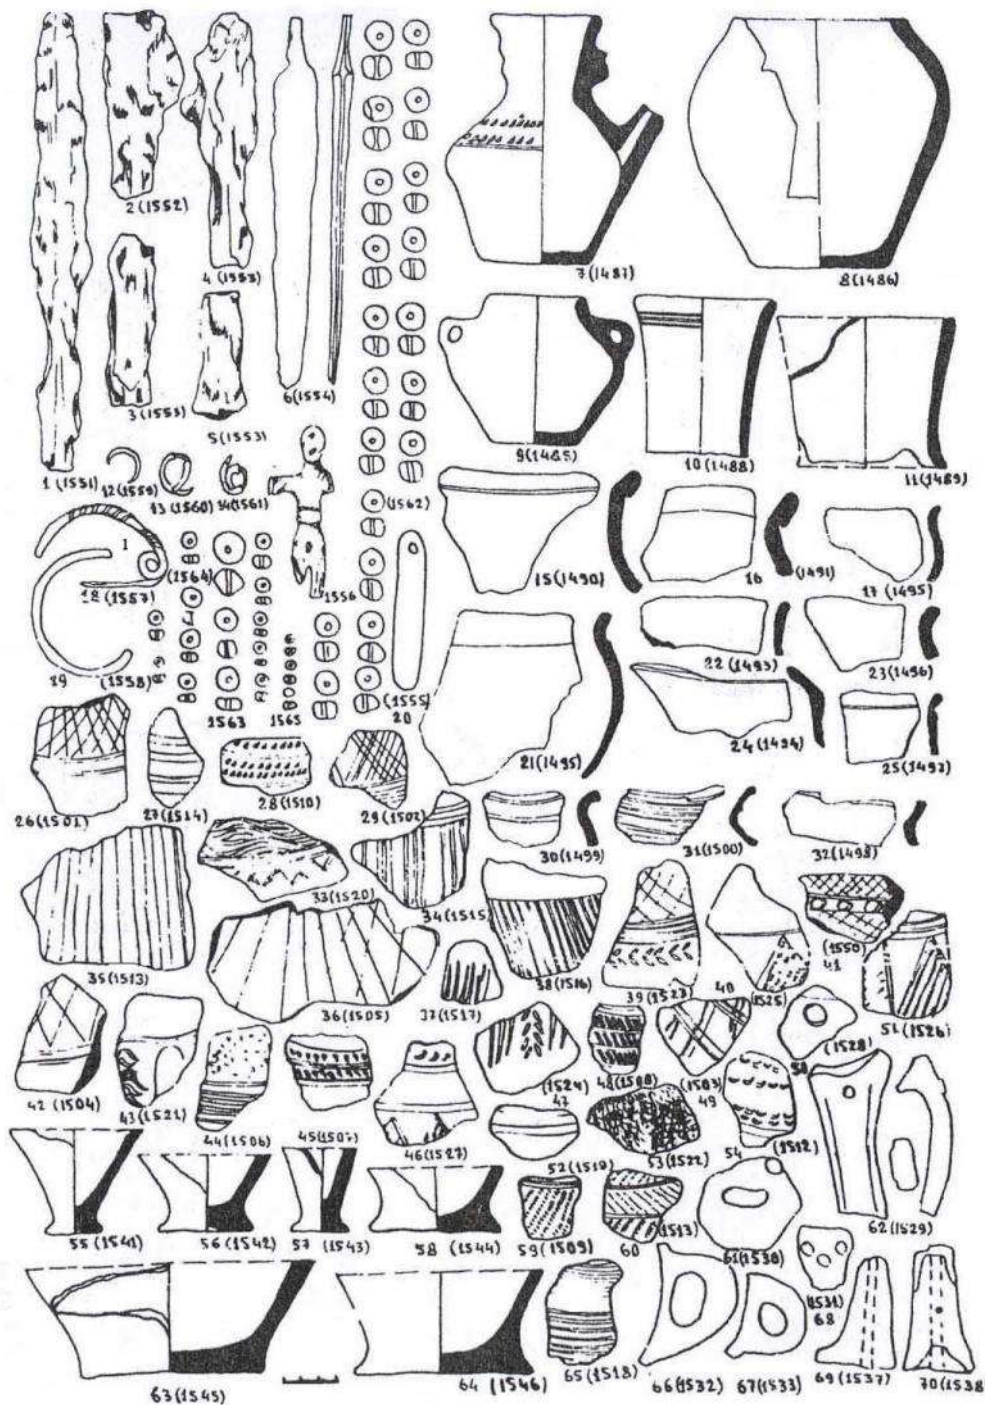 2 (1552)
4 (1553)
7 (1487)
8 (1486)
3 (1553)
6 (1554)
5 (1553)
1 (1551)
12 (1559)
13 (1560)
14 (1561)
9 (1485)
10 (1488)
11 (1489)
(1562)
1
15 (1490)
16
(1491)
17 (1495)
18 (1557)
(1564)
1556
22 (1493)
23 (1496)
19
(1558)
1563
1565
(1555)
20
24 (1494)
21 (1495)
25 (1497)
26 (1501)
27 (1514)
28 (1510)
29 (1502)
30 (1499)
31 (1500)
32 (1498)
33 (1520)
34 (1515)
35 (1513)
36 (1505)
37 (1517)
38 (1516)
39 (1523)
40
1525
(1550)
41
51 (1526)
42 (1504)
43 (1521)
44 (1506)
45 (1507)
46 (1527)
(1524)
47
48 (1508)
(1503)
49
50
(1528)
52 (1519)
53 (1522)
54
(1512)
55 (1541)
56 (1542)
57 (1543)
58 (1544)
59 (1509)
60
(1513)
61 (1530)
62 (1529)
(1531)
68
63 (1545)
64 (1546)
65 (1518)
66 (1532)
67 (1533)
69 (1537)
70 (1538)